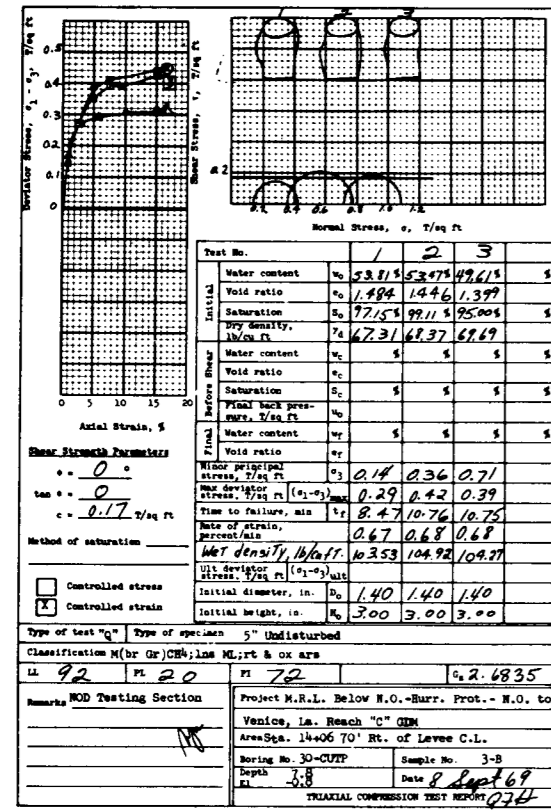 1 2 3
Deviator Stress, σ₁ - σ₃, T/sq ft
0.5
0.4
0.3
0.2
0.1
0
Shear Stress, τ, T/sq ft
0.2 0.4 0.6 0.8 1.0 1.2
Normal Stress, σ, T/sq ft
0 5 10 15 20
Axial Strain, %
Shear Strength Parameters
φ = 0 °
tan φ = 0
c = 0.17 T/sq ft
Method of saturation
Controlled stress
X Controlled strain
Test No. 1 2 3
Initial
Water content w₀ 53.81 % 53.47 % 49.61 % %
Void ratio e₀ 1.484 1.446 1.399
Saturation S₀ 97.15 % 99.11 % 95.00 % %
Dry density, lb/cu ft γd 67.31 68.37 69.69
Before Shear
Water content wc % % % %
Void ratio ec
Saturation Sc % % % %
Final back pressure, T/sq ft u₀
Final
Water content wf % % % %
Void ratio ef
Minor principal stress, T/sq ft σ₃ 0.14 0.36 0.71
Max deviator stress, T/sq ft (σ₁-σ₃)max 0.29 0.42 0.39
Time to failure, min tf 8.47 10.76 10.75
Rate of strain, percent/min 0.67 0.68 0.68
Wet density, lb/cu ft. 103.53 104.92 104.27
Ult deviator stress, T/sq ft (σ₁-σ₃)ult
Initial diameter, in. D₀ 1.40 1.40 1.40
Initial height, in. H₀ 3.00 3.00 3.00
Type of test "Q" Type of specimen 5" Undisturbed
Classification M(br Gr)CH4;lns ML;rt & ox ars
LL 92 PL 20 PI 72 Gs 2.6835
Remarks NOD Testing Section
Project M.R.L. Below N.O.-Hurr. Prot.- N.O. to
Venice, La. Reach "C" GDM
Area Sta. 14+06 70' Rt. of Levee C.L.
Boring No. 30-CUTP Sample No. 3-B
Depth 7.8
El -0.8 Date 8 Sept 69
TRIAXIAL COMPRESSION TEST REPORT